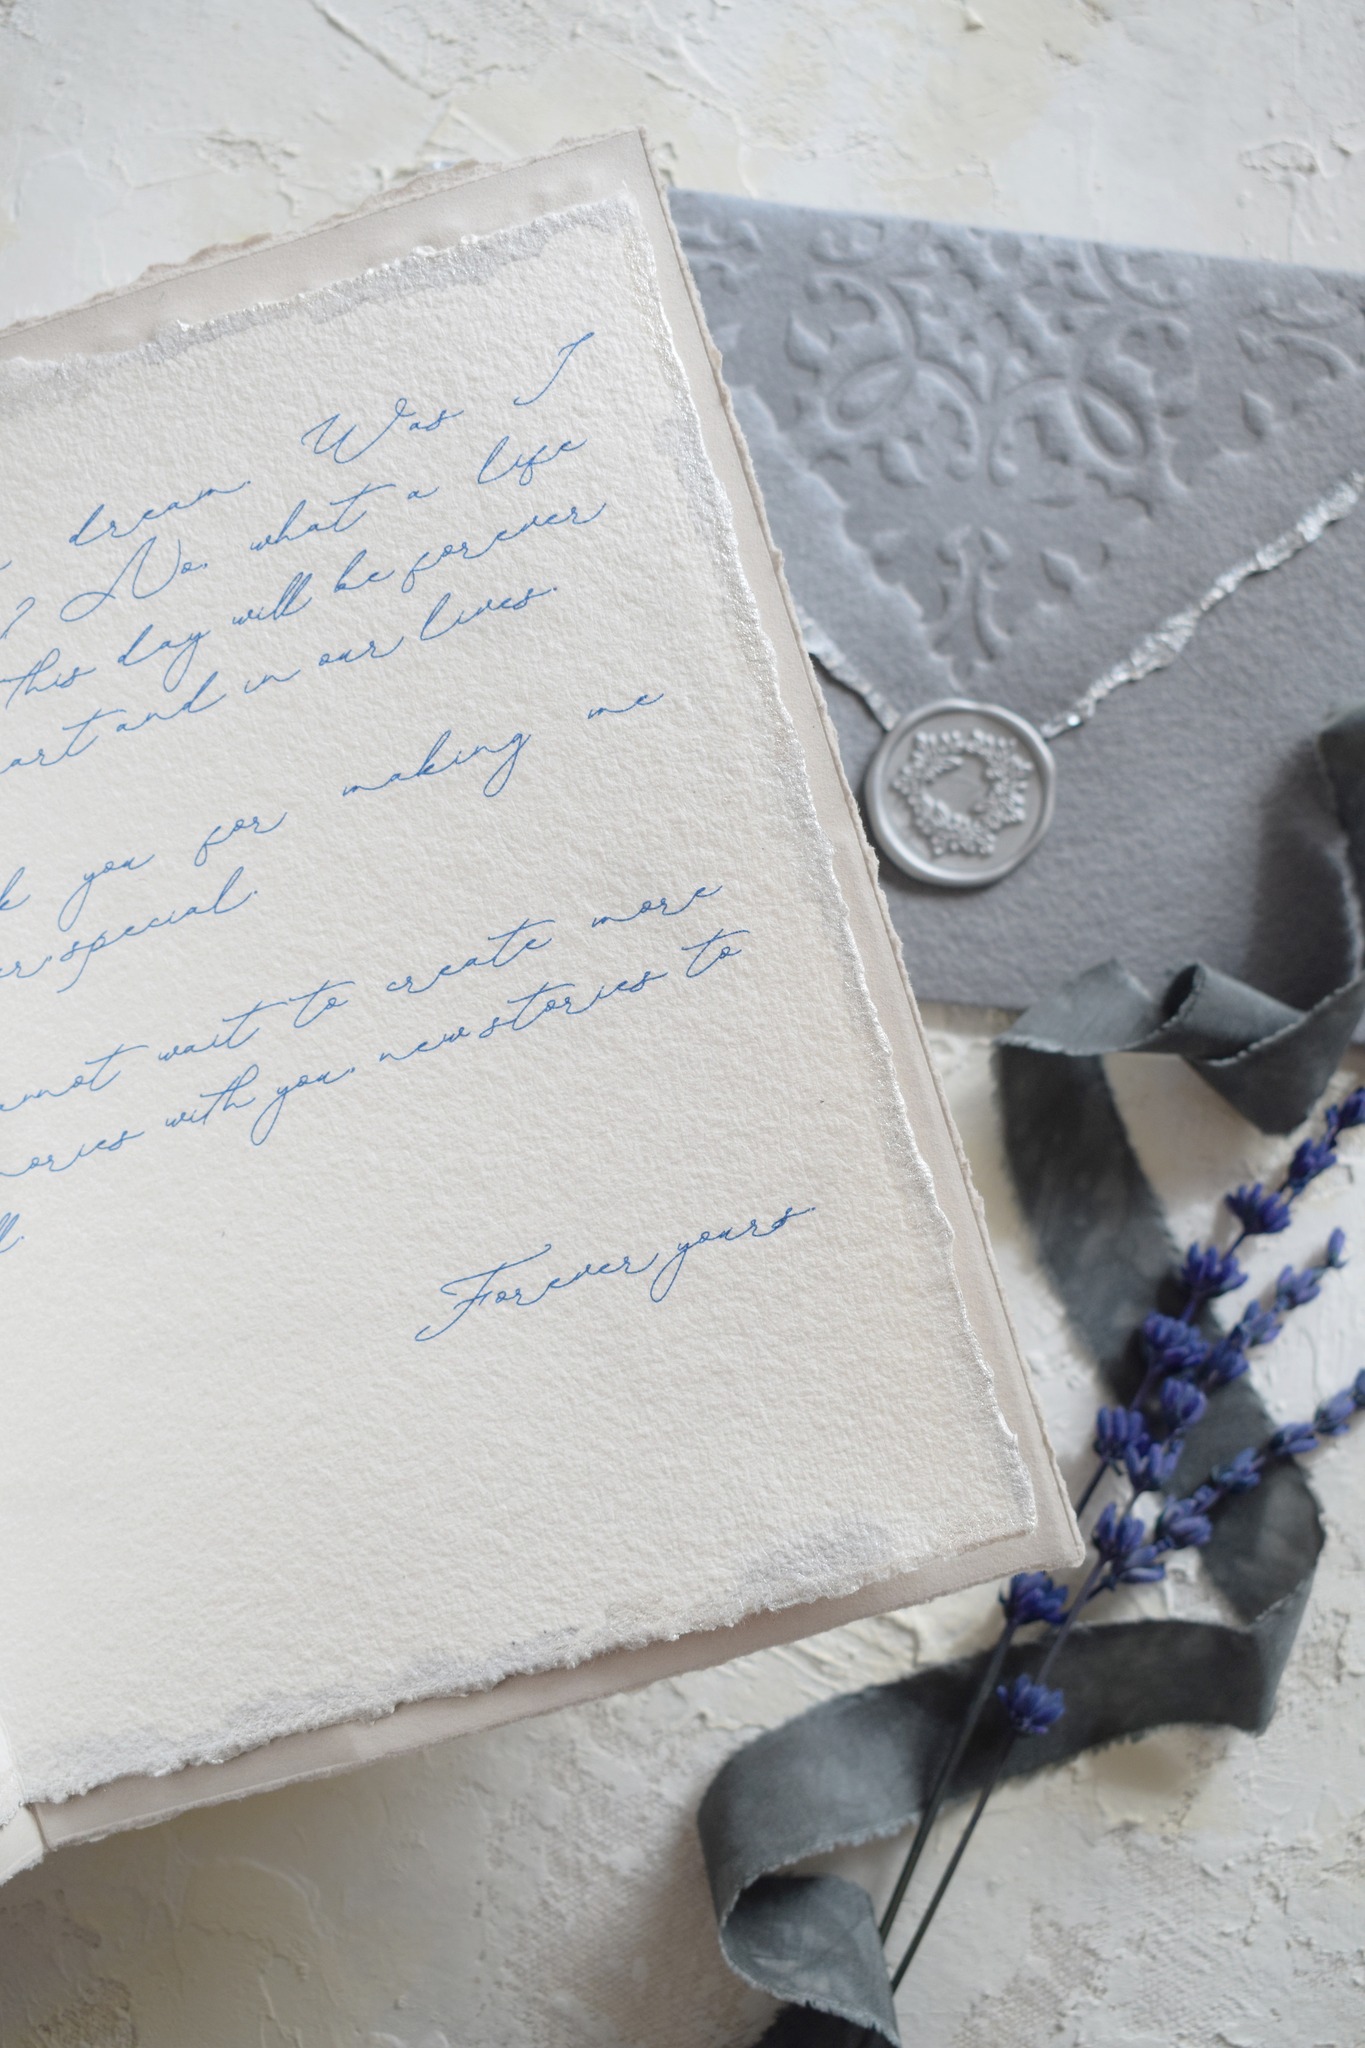 dream. Was I
? No, what a life
this day will be forever
art and in our lives.
k you for making me
er special.
annot wait to create more
ories with you, new stories to
ll.
Forever yours.